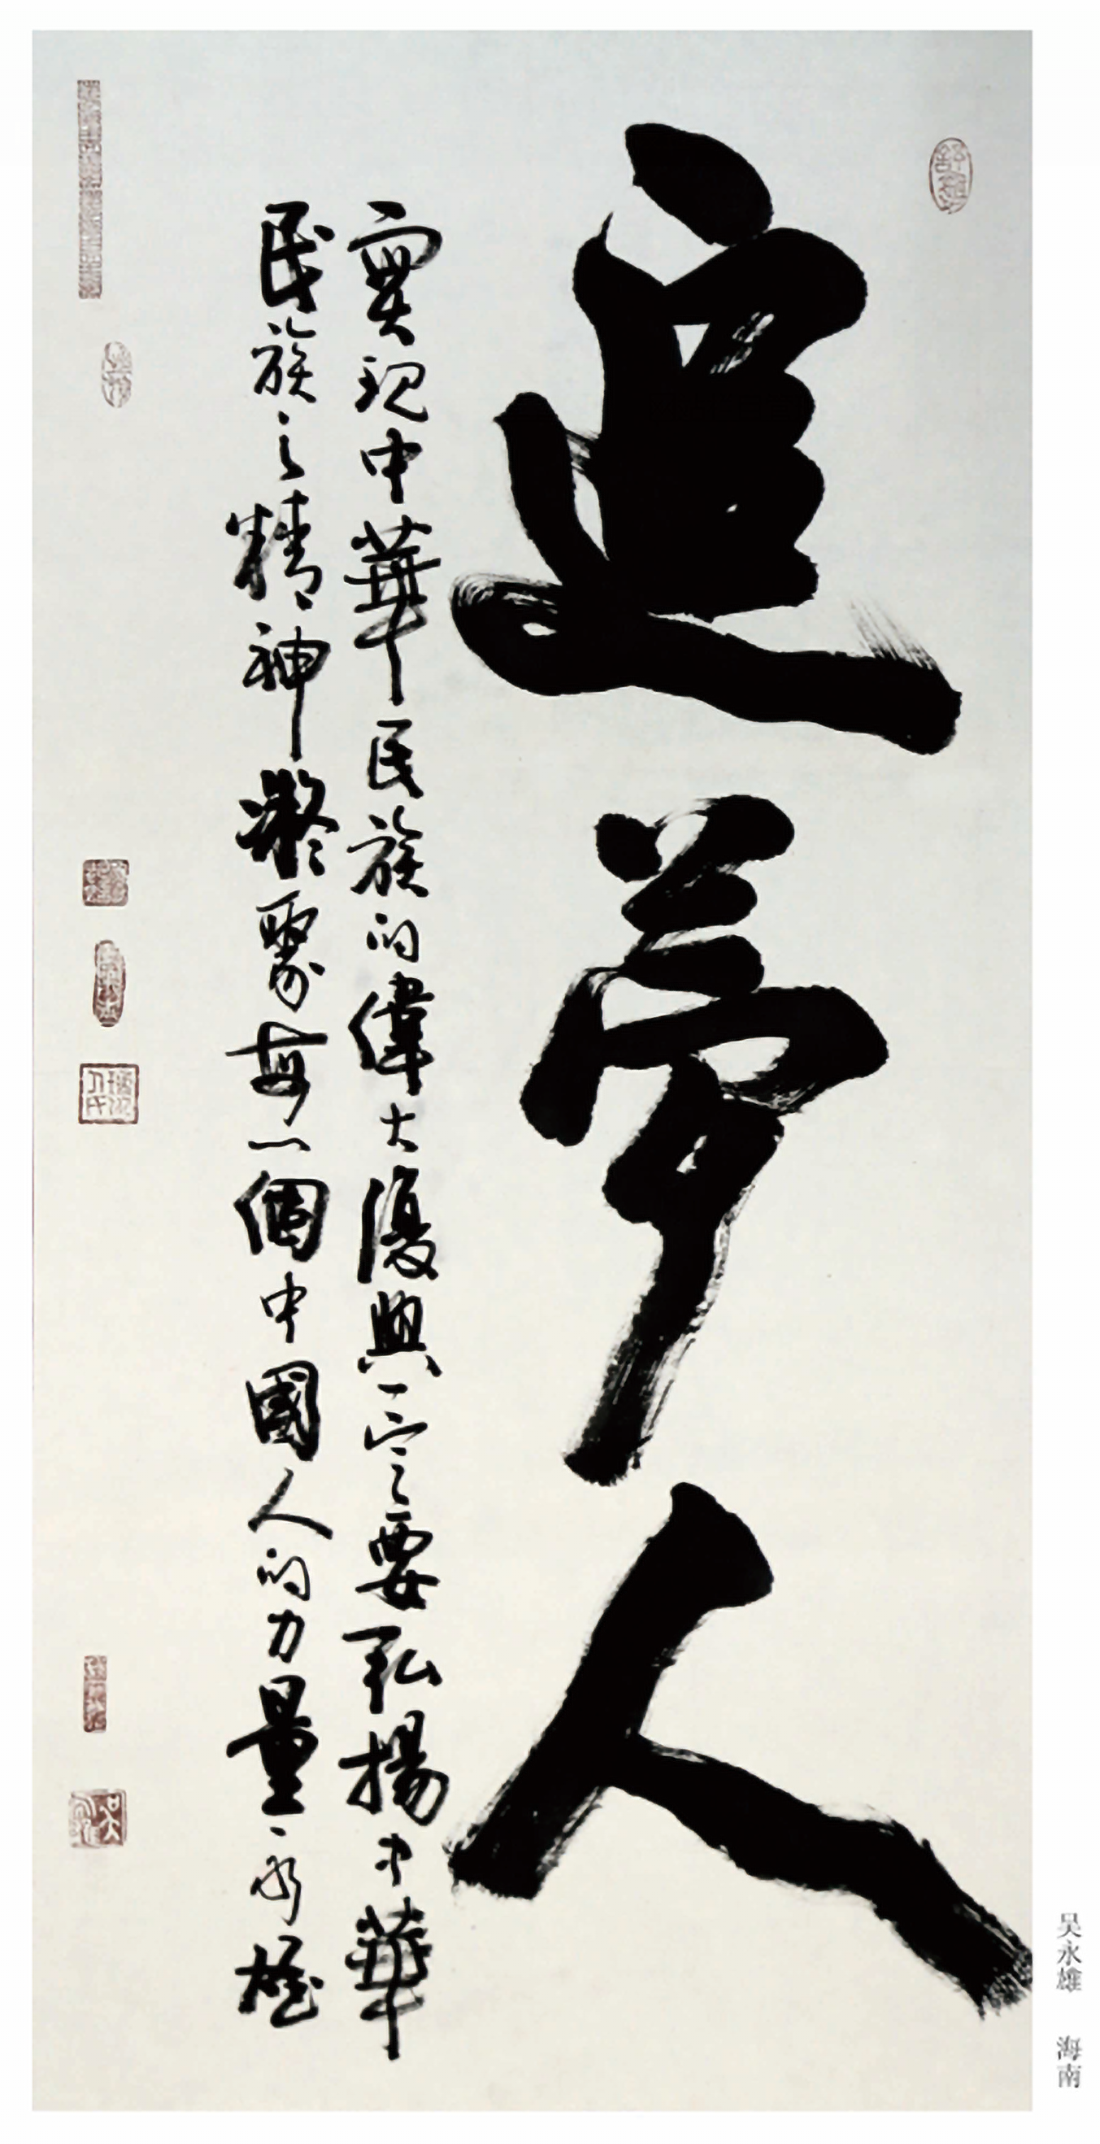 追夢人
實現中華民族的偉大復興一定要弘揚中華
民族之精神凝聚每一個中國人的力量永雄
吴永雄 海南